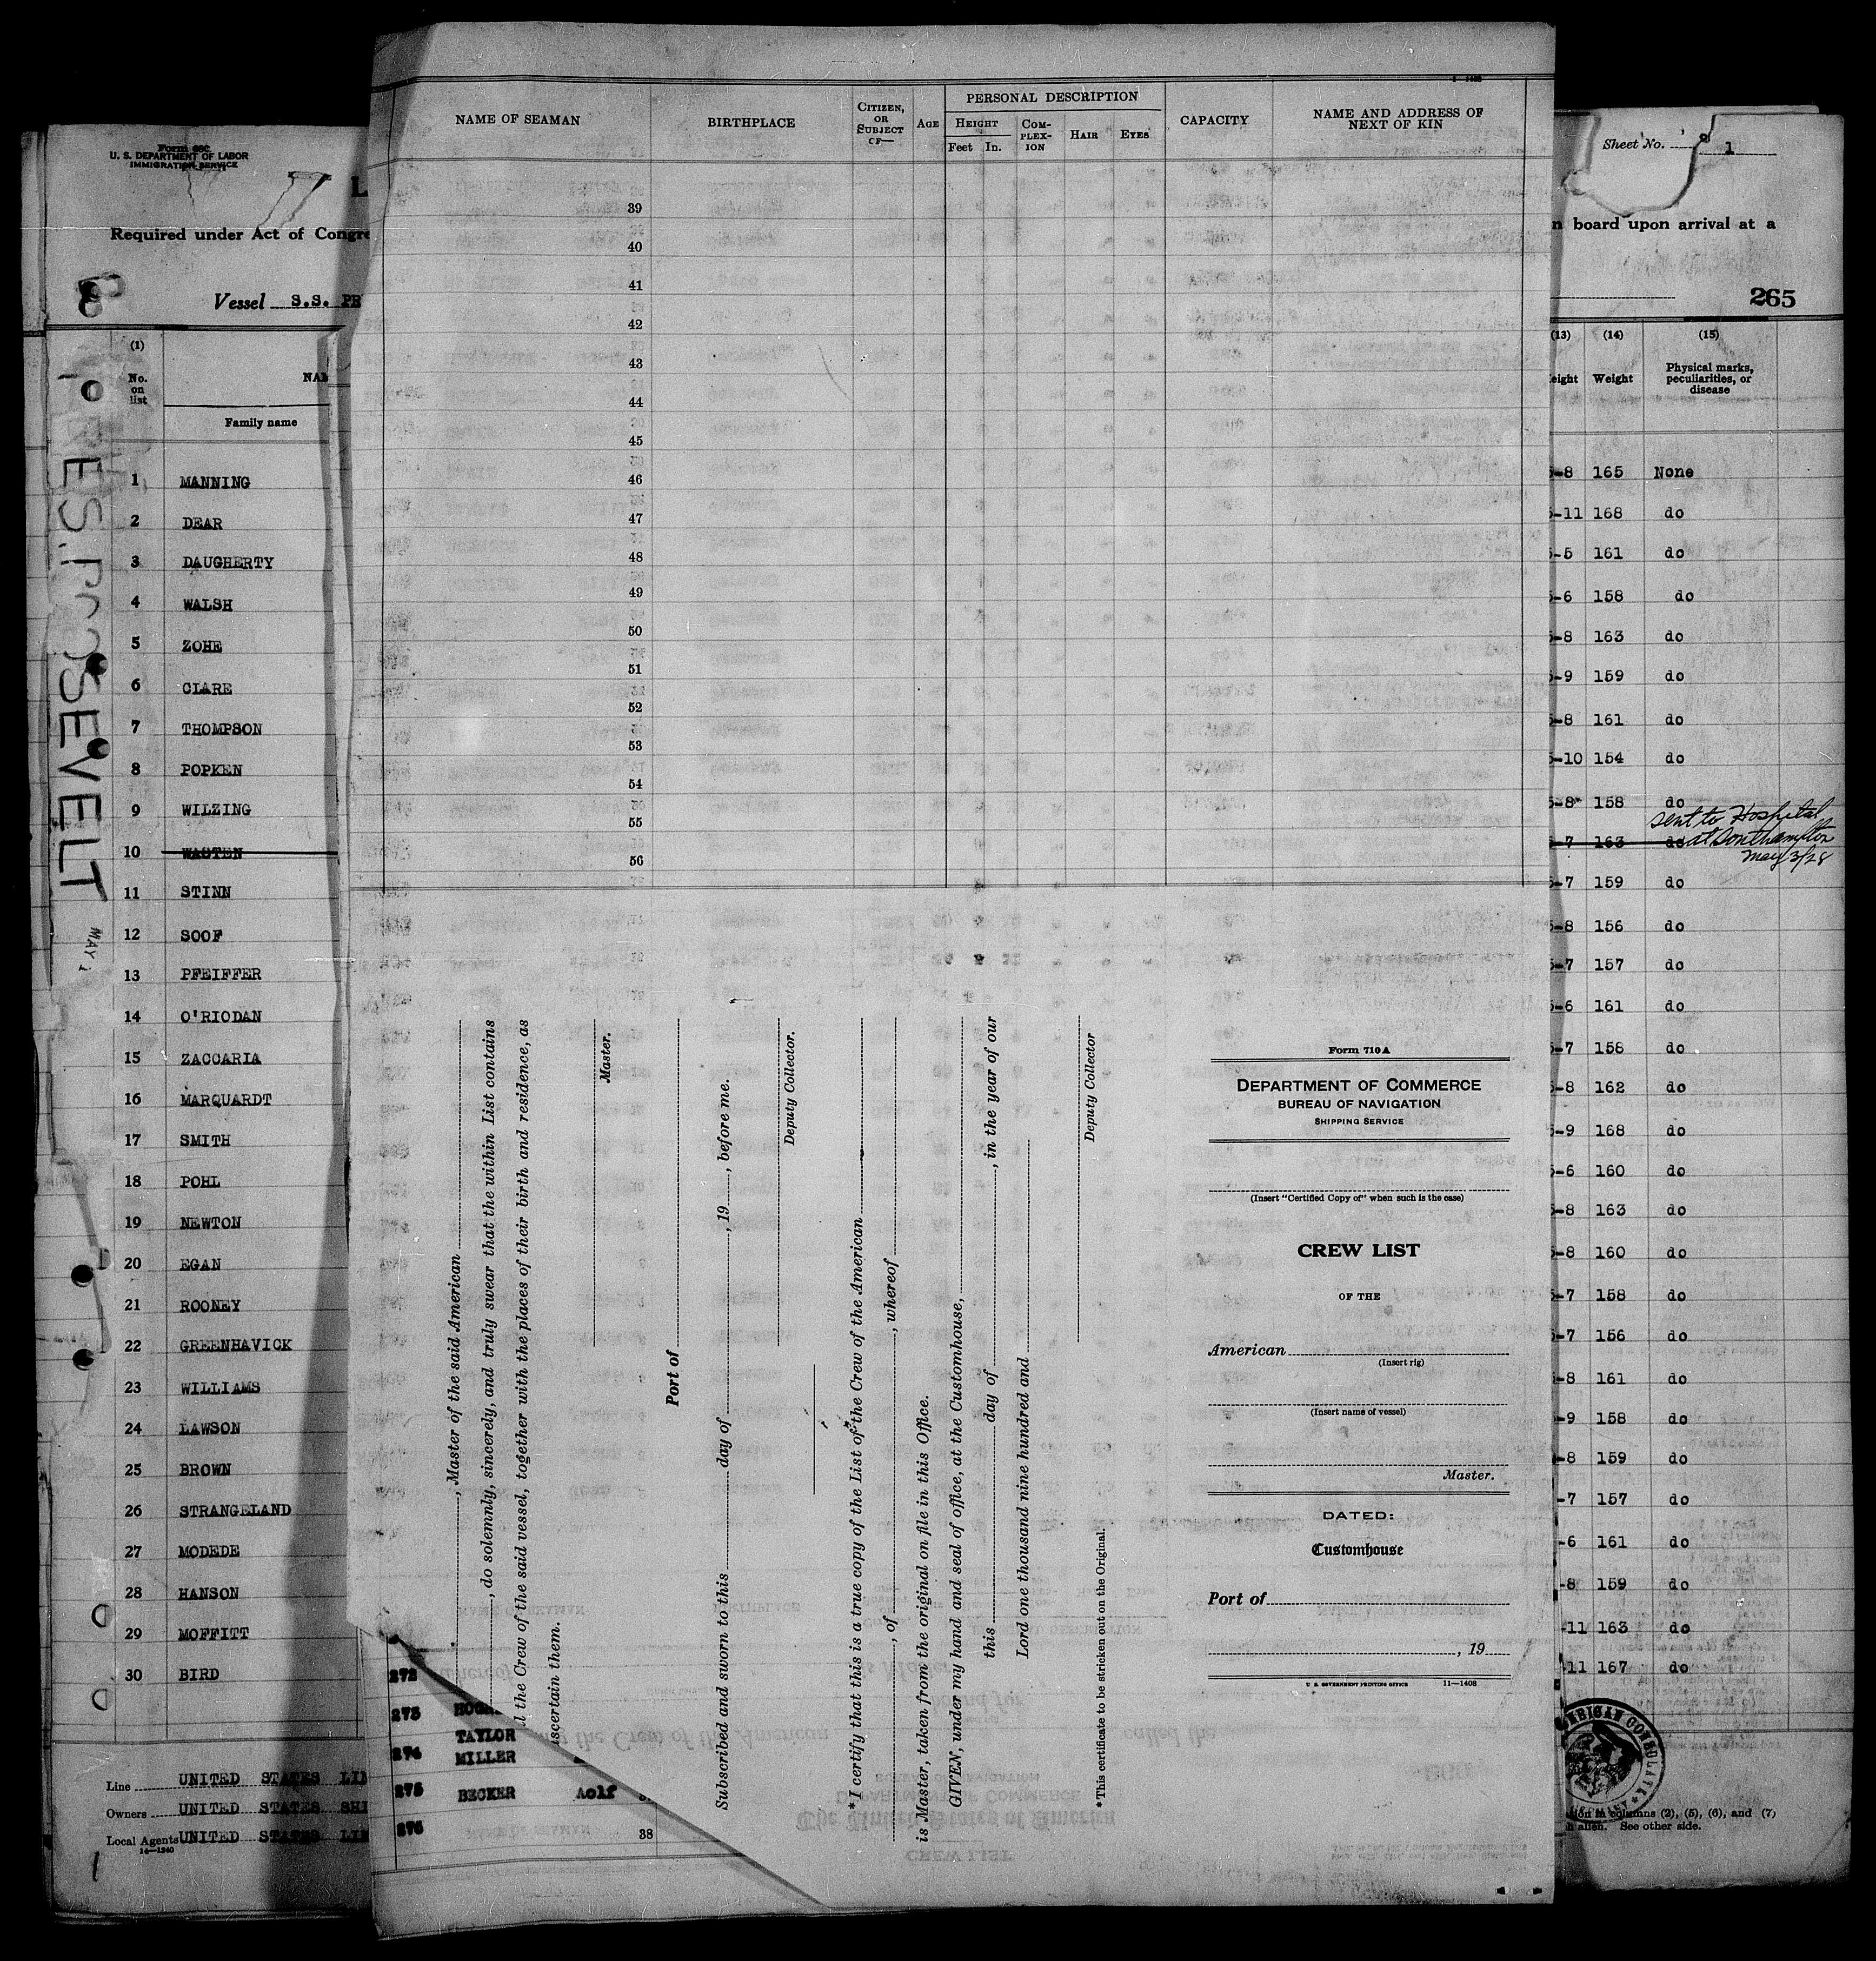 Form 680
U. S. DEPARTMENT OF LABOR
IMMIGRATION SERVICE
Required under Act of Congre
Vessel S.S. PR
8
PRES. ROOSEVELT
MAY 1
(1)
No. on list
Family name
1 MANNING
2 DEAR
3 DAUGHERTY
4 WALSH
5 ZOHE
6 CLARE
7 THOMPSON
8 POPKEN
9 WILZING
10 WASTEN
11 STINN
12 SOOF
13 PFEIFFER
14 O'RIODAN
15 ZACCARIA
16 MARQUARDT
17 SMITH
18 POHL
19 NEWTON
20 EGAN
21 ROONEY
22 GREENHAVICK
23 WILLIAMS
24 LAWSON
25 BROWN
26 STRANGELAND
27 MODEDE
28 HANSON
29 MOFFITT
30 BIRD
Line UNITED STATES LI
Owners UNITED STATES SHI
Local Agents UNITED STATES LI
14—1240
NAME OF SEAMAN
BIRTHPLACE
CITIZEN, OR SUBJECT OF—
AGE
PERSONAL DESCRIPTION
HEIGHT
Feet In.
COMPLEXION
HAIR
EYES
CAPACITY
NAME AND ADDRESS OF NEXT OF KIN
39
40
41
42
43
44
45
46
47
48
49
50
51
52
53
54
55
56
, Master of the said American
, do solemnly, sincerely, and truly swear that the within List contains
l the Crew of the said vessel, together with the places of their birth and residence, as
scertain them.
Master.
Port of
Subscribed and sworn to this day of , 19 , before me.
Deputy Collector.
*I certify that this is a true copy of the List of the Crew of the American
, of , whereof
is Master, taken from the original on file in this Office.
GIVEN, under my hand and seal of office, at the Customhouse,
this day of , in the year of our
Lord one thousand nine hundred and
Deputy Collector
*This certificate to be stricken out on the Original.
Form 710 A
DEPARTMENT OF COMMERCE
BUREAU OF NAVIGATION
SHIPPING SERVICE
(Insert "Certified Copy of" when such is the case)
CREW LIST
OF THE
American
(Insert rig)
(Insert name of vessel)
Master.
DATED:
Customhouse
Port of
, 19
U. S. GOVERNMENT PRINTING OFFICE 11—1408
272
273
TAYLOR
274 MILLER
275 BECKER Aolf
276
38
Sheet No. 1
n board upon arrival at a
265
(13) (14) (15)
eight Weight Physical marks, peculiarities, or disease
5-8 165 None
5-11 168 do
5-5 161 do
5-6 158 do
5-8 163 do
5-9 159 do
5-8 161 do
5-10 154 do
5-8 158 do
sent to Hospital
5-7 163 do at Southampton
May 3/28
5-7 159 do
5-8 156 do
5-7 157 do
5-6 161 do
5-7 156 do
5-8 162 do
5-9 168 do
5-6 160 do
5-8 163 do
5-8 160 do
5-7 158 do
5-7 156 do
5-8 161 do
5-9 158 do
5-8 159 do
-7 157 do
-6 161 do
-8 159 do
-11 163 do
-11 167 do
tion in columns (2), (5), (6), and (7)
h alien. See other side.